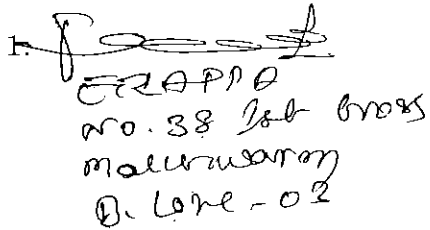 1.
ERAPPA
No. 38 1st Cross
Malleswaram
B. Lore - 03